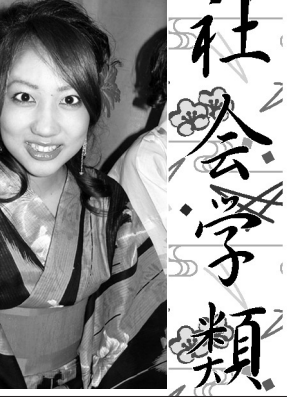 社会学類